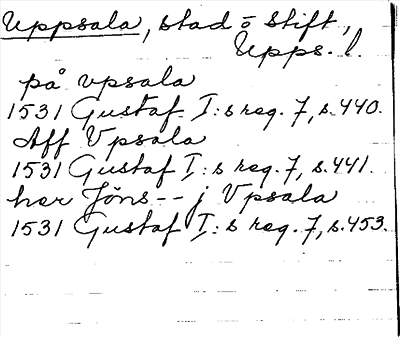 Uppsala, stad o stift,
Upps. l.
på vpsala
1531 Gustaf I:s reg. 7, s. 440.
Aff Vpsala
1531 Gustaf I:s reg. 7, s. 441.
her Jöns -- j Vpsala
1531 Gustaf I:s reg. 7, s. 453.